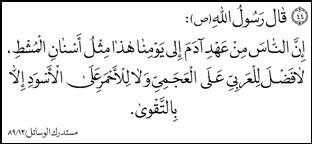 (٤٤) قَالَ رَسُولُ اللهِ (ص):
إِنَّ النَّاسَ مِنْ عَهْدِ آدَمَ إِلَى يَوْمِنَا هَذَا مِثْلُ أَسْنَانِ الْمُشْطِ،
لَا فَضْلَ لِلْعَرَبِيِّ عَلَى الْعَجَمِيِّ وَلَا لِلْأَحْمَرِ عَلَى الْأَسْوَدِ إِلَّا
بِالتَّقْوَىٰ.
مستدرك الوسائل/١٢/٨٩